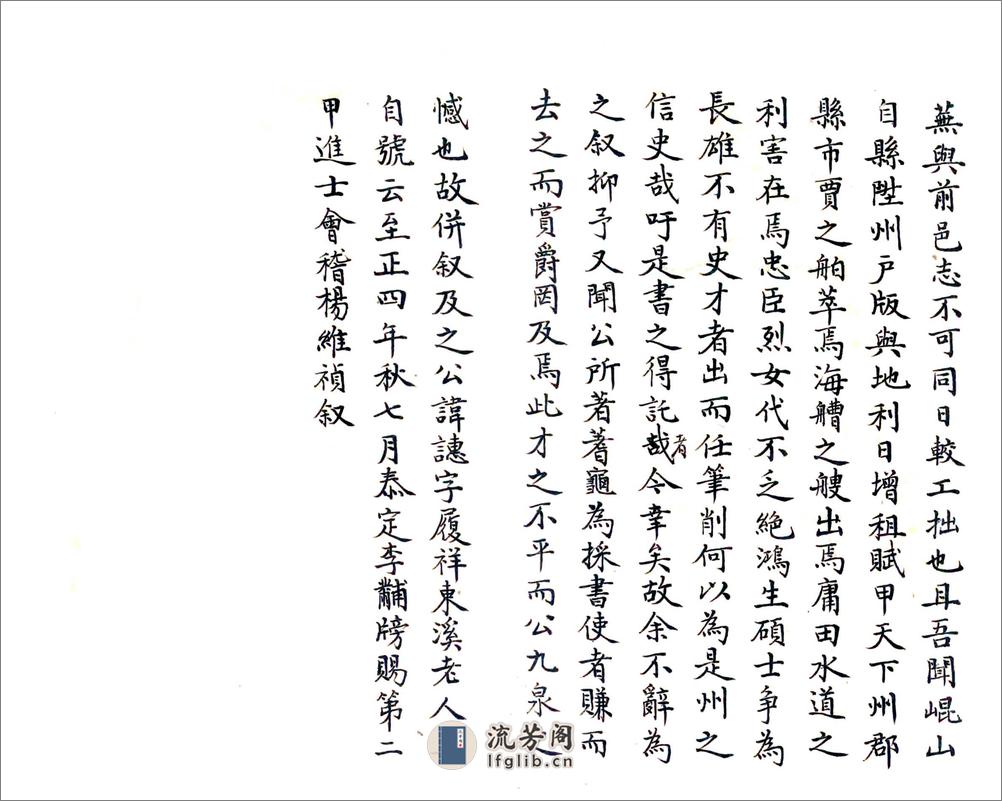 蕪與前邑志不可同日較工拙也且吾聞崐山
自縣陞州戶版與地利日增租賦甲天下州郡
縣市賈之舶萃焉海艚之艘出焉庸田水道之
利害在焉忠臣烈女代不乏絕鴻生碩士爭為
長雄不有史才者出而任筆削何以為是州之
信史哉吁是書之得託哉者今幸矣故余不辭為
之叙抑予又聞公所著蓍龜為採書使者賺而
去之而賞爵罔及焉此才之不平而公九泉之
憾也故併叙及之公諱譓字履祥東溪老人
自號云至正四年秋七月泰定李黼牓賜第二
甲進士會稽楊維禎叙
流芳阁
lfglib.cn